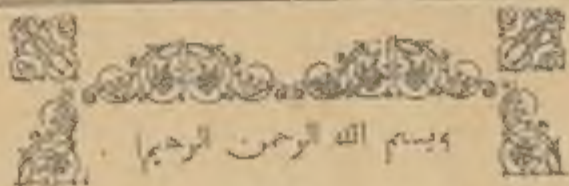 ﴿بسم الله الرحمن الرحيم﴾